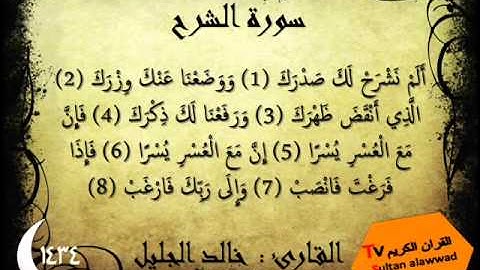 سورة الشرح
أَلَمْ نَشْرَحْ لَكَ صَدْرَكَ (1) وَوَضَعْنَا عَنْكَ وِزْرَكَ (2)
الَّذِي أَنْقَضَ ظَهْرَكَ (3) وَرَفَعْنَا لَكَ ذِكْرَكَ (4) فَإِنَّ
مَعَ الْعُسْرِ يُسْرًا (5) إِنَّ مَعَ الْعُسْرِ يُسْرًا (6) فَإِذَا
فَرَغْتَ فَانْصَبْ (7) وَإِلَى رَبِّكَ فَارْغَبْ (8)
القارئ : خالد الجليل
١٤٣٤
القران الكريم TV
Sultan alawwad